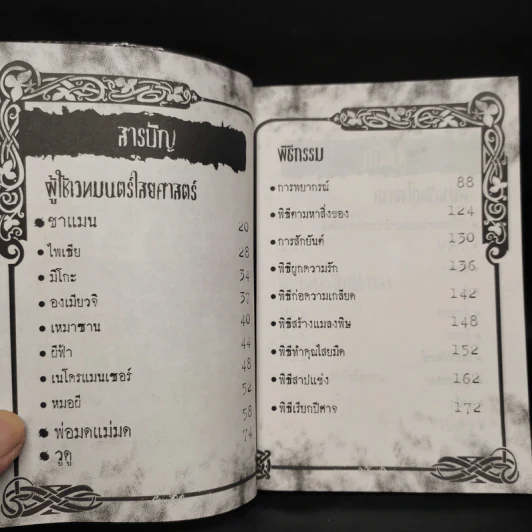 สารบัญ
ผู้ใช้เวทมนตร์ไสยศาสตร์
• ชาแมน 20
• ไพเธีย 28
• มิโกะ 34
• องเมียวจิ 37
• เหมาซาน 40
• ผีฟ้า 44
• เนโครแมนเซอร์ 48
• หมอผี 52
• พ่อมดแม่มด 58
• วูดู 74
พิธีกรรม
• การพยากรณ์ 88
• พิธีตามหาสิ่งของ 124
• การสักยันต์ 130
• พิธีผูกความรัก 136
• พิธีก่อความเกลียด 142
• พิธีสร้างแมลงพิษ 148
• พิธีทำคุณไสยมืด 152
• พิธีสาปแช่ง 162
• พิธีเรียกปีศาจ 172